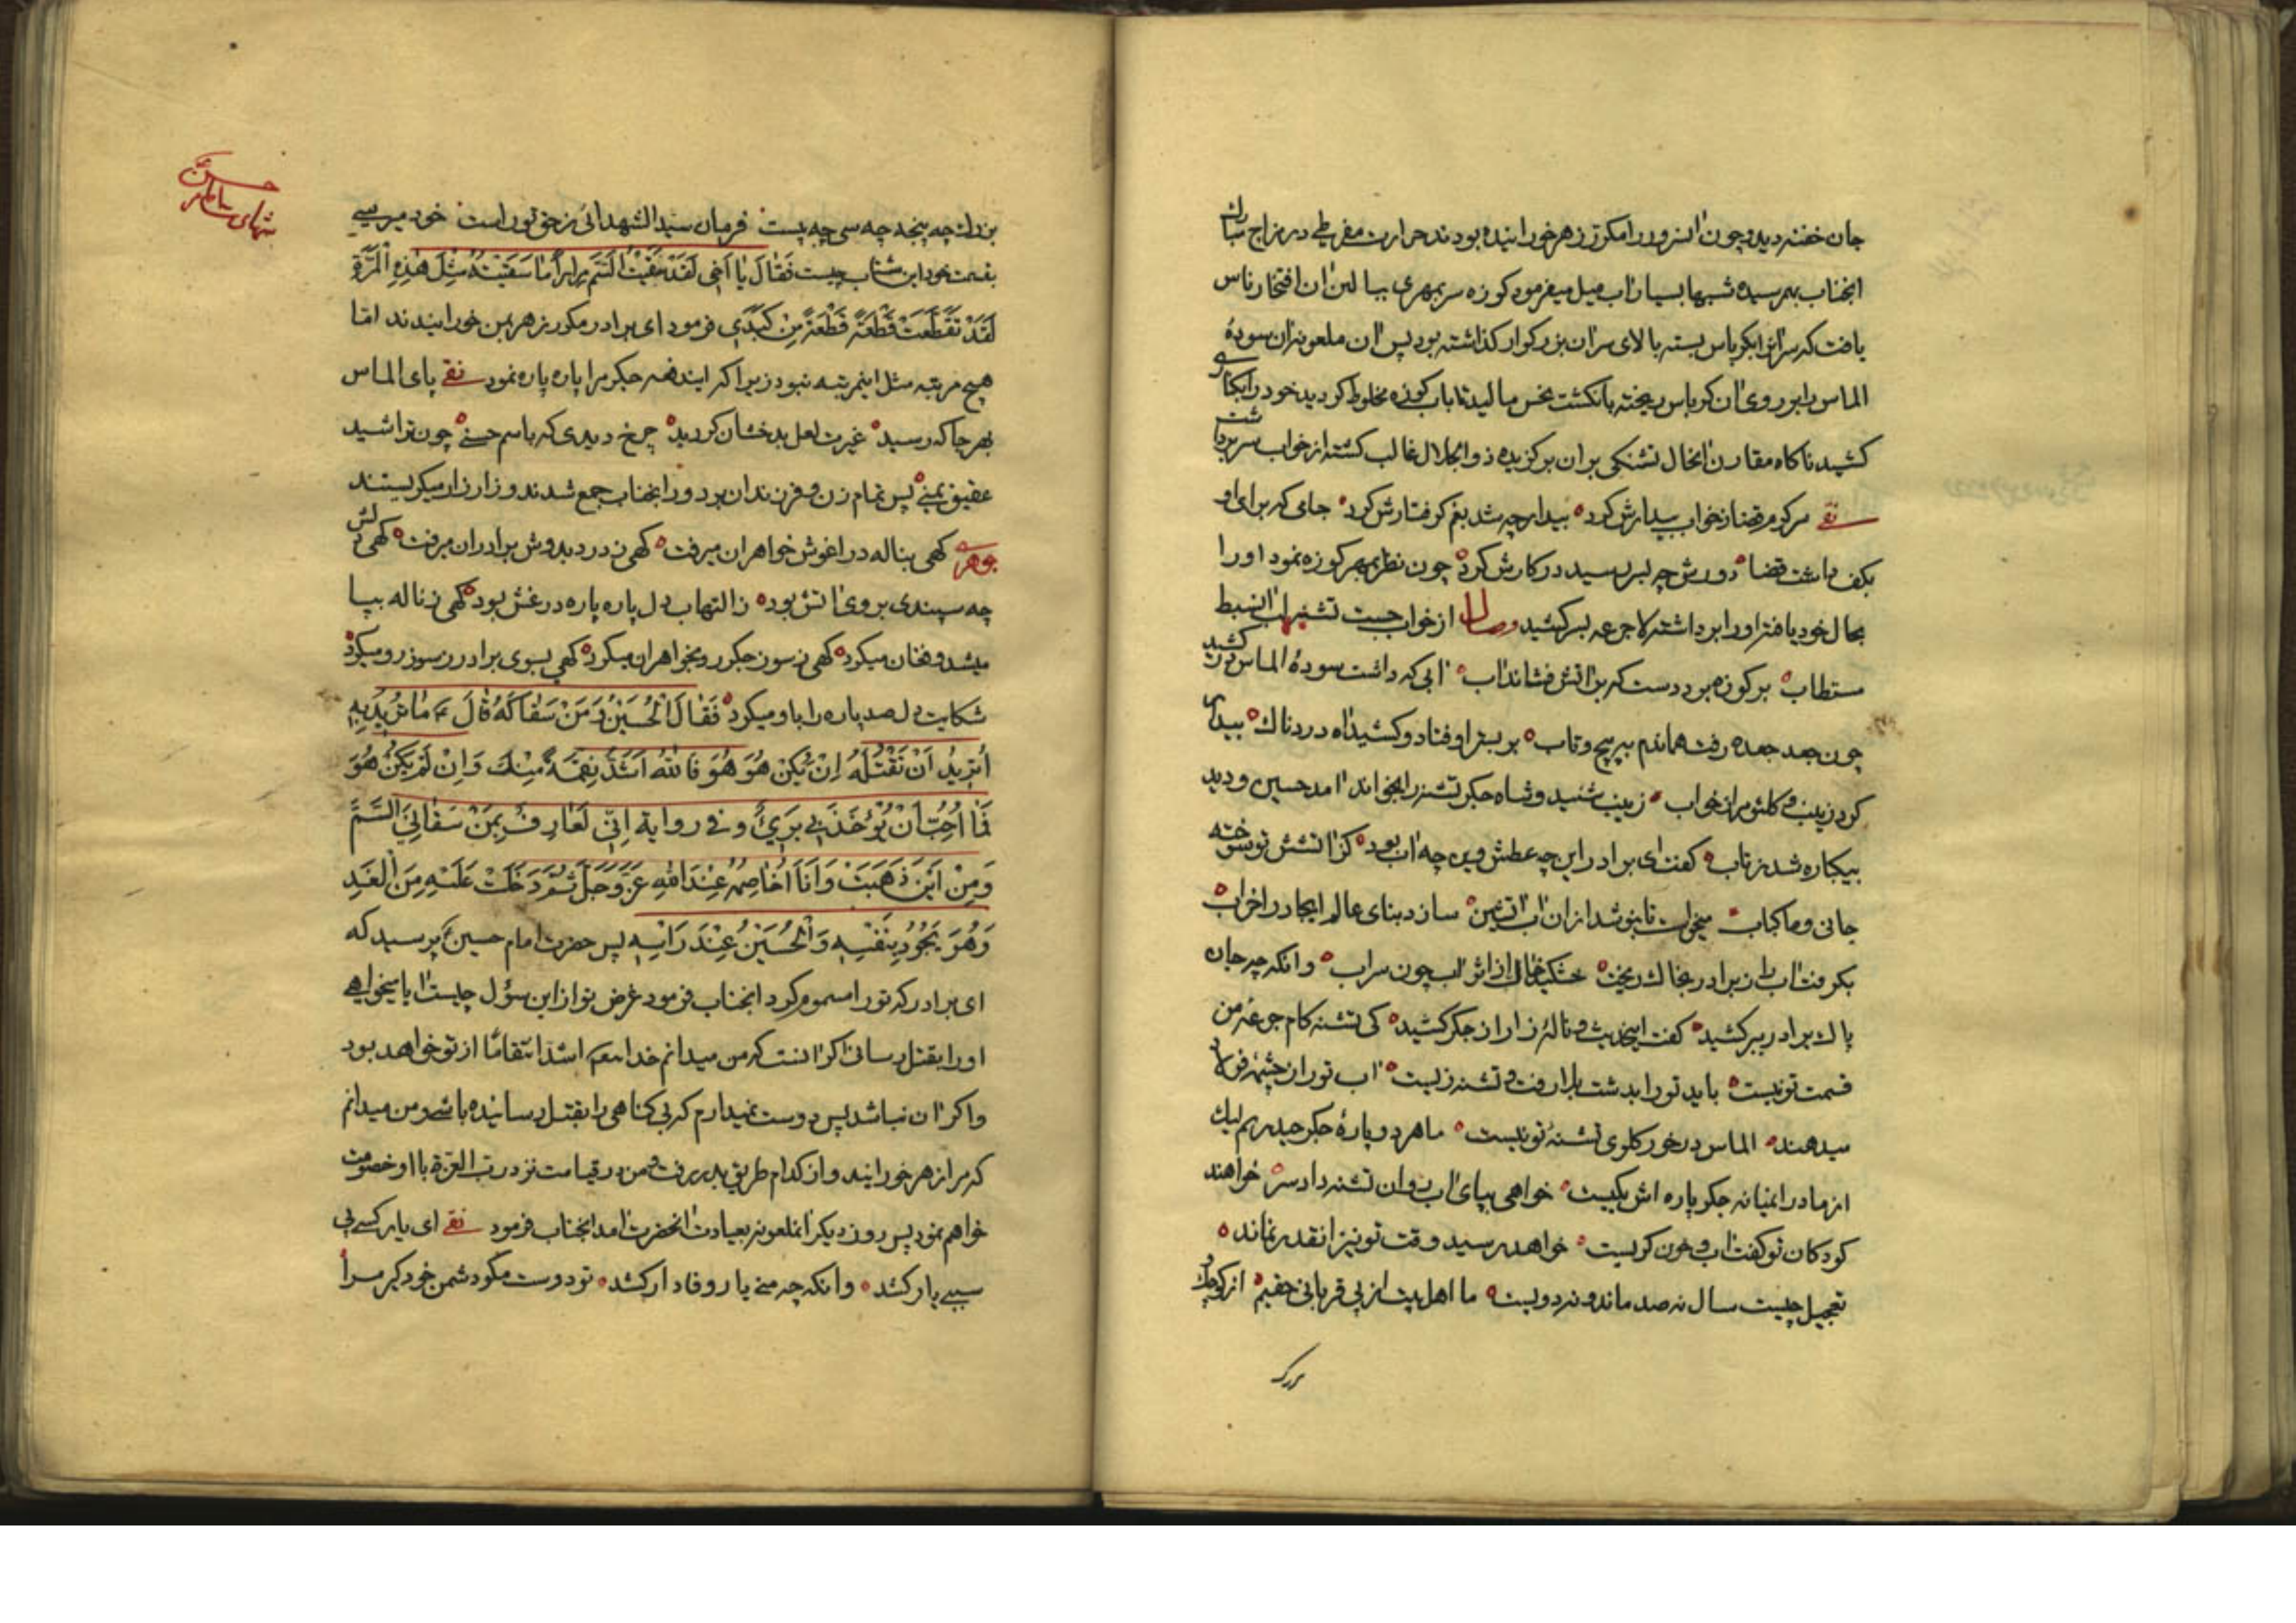 جان خفته دید و چون آنسرور را مکرّر زهر خورانیده بودند حرارت مفرطی در مزاج مبارك
انجناب بهم رسیده شبها بسیار اب میل میفرمود کوزه سر بمهری ببالین آن افتخار ناس
یافت که سر انرا بکرباس بسته بالای سر ان بزرکوار کذاشته بود پس ان ملعونه ان سودهٔ
الماس را بر روی ان کرباس ریخته بانکشت نحس مالید تا باب کوزه مخلوط کردید خود را بکناری
کشید ناکاه مقارن انحال تشنکی بران برکزیده ذوالجلال غالب کشته از خواب سر برداشت
نقی مرکو مرقضا زخواب بیدارش کرد بیدار چه شد بغم کرفتارش کرد جامی که برای او
بکف داشت قضا دورش چه لبر رسید در کارش کرد چون نظر بمهر کوزه نمود او را
بحال خود یافته او را برداشته لاجرعه بسر کشید وصال از خواب جست تشنه لب
مستطاب بر کوزه برد دست که بر اتش فشاند اب ابی که داشت سودهٔ الماس درکشید
چون جعد جعده رفت هماندم به پیچ و تاب بر بستر اوفتاد و کشید اه دردناك بیدار
کرد زینب و کلثوم را ز خواب زینب شنید و شاه جکر تشنه را بخواند امد حسین و دید
بیکباره شد ز تاب کفت ای برادر این چه عطش وین چه اب بود کز اتشش تو سوخته
جانی و ما کباب میخواست تا بنوشد از ان اب اتشین سازد بنای عالم ایجاد را خراب
بکرفت اب را ز برادر بخاك ریخت خشکید خاك از اثر اب چون سراب وانکه چه جان
پاك برادر ببر کشید کفت اینحدیث و نالهٔ زار از جکر کشید کی تشنه کام جرعهٔ من
قسمت تو نیست باید تو را بدشت بلا رفت و تشنه زیست اب تو را ز چشمهٔ فولاد
میدهند الماس در خور کلوی تشنهٔ تو نیست ما هر دو پارهٔ جکر حیدریم لیك
از ما در انمیانه جکر پاره اش یکیست خواهی بپای اب روان تشنه داد سر خواهند
کودکان تو کفت اب و خون کریست خواهد رسید وقت تو نیز انقدر نمانده
تعجیل چیست سال نه صد مانده و نه دویست ما اهل بیت از پی قربانی حقیم از کوچك
بزرك
حسن
بزرك چه پنجه چه سی چه بیست فرمان سید الشهدائی ز حق تو راست خود میرسی
بقسمت خود این شتاب چیست فَقَالَ یَا اَخِی لَقَدْ سُقِیْتُ السَّمَّ مِرَاراً مَا سُقِیْتُهُ مِثْلَ هٰذِهِ الْمَرَّةِ
لَقَدْ تَقَطَّعَتْ قِطْعَةً قِطْعَةً مِنْ کَبِدِی فرمود ای برادر مکرر زهر بمن خورانیدند امّا
هیچ مرتبه مثل اینمرتبه نبود زیرا که ایندفعه جکر مرا پاره پاره نمود نقی پای الماس
بهر جا که رسید غیرت لعل بدخشان کردید چرخ دیدی که باسم حسنی چون تراشید
عقیق یمنی پس تمام زن و فرزندان بر دور انجناب جمع شدند و زار زار میکریستند
جوهری کهی بناله در اغوش خواهران میرفت کهی ز درد بدوش برادران میرفت کهی
چه سپندی بروی اتش بود ز التهاب دل پاره پاره در غش بود کهی ز ناله بپا
میشد و فغان میکرد کهی ز سوز جکر رو بخواهران میکرد کهی بسوی برادر ز سوز رو میکرد
شکایت دل صد پاره را باو میکرد فَقَالَ الْحُسَیْنُ وَ مَنْ سَقَاكَهُ قَالَ ع مَا تُرِیدُ بِهِ
أَتُرِیدُ اَنْ تَقْتُلَهُ اِنْ یَکُنْ هُوَ هُوَ فَاللّٰهُ اَشَدُّ نِقْمَةً مِنْكَ وَ اِنْ لَمْ یَکُنْ هُوَ
فَمَا اُحِبُّ اَنْ یُؤْخَذَ بِی بَرِیٌ و فی روایة اِنِّی لَعَارِفٌ بِمَنْ سَقَانِیَ السَّمَّ
وَ مِنْ اَیْنَ ذَهَبَتْ وَ اَنَا اُخَاصِمُهُ عِنْدَ اللّٰهِ عَزَّ وَ جَلَّ ثُمَّ دَخَلْتُ عَلَیْهِ مِنَ الْغَدِ
وَ هُوَ یَجُودُ بِنَفْسِهِ وَ الْحُسَیْنُ عِنْدَ رَاْسِهِ پس حضرت امام حسین ع پرسید که
ای برادر که تو را مسموم کرد انجناب فرمود غرض تو از این سؤل چیست ایا میخواهی
او را بقتل رسانی اکر انست که من میدانم خدا اشد انتقاماً از تو خواهد بود
و اکر ان نباشد پس دوست نمیدارم که بی کناهی را بقتل رسانیده باشی و من میدانم
که مرا زهر خورانید و از کدام طریق بدر رفت و من در قیامت نزد ربّ العزة با او خصومت
خواهم نمود پس روز دیکر انملعونه بعیادت انحضرت امد انجناب فرمود نقی ای یار کسی بی
سببی یار کشد وانکه چه منی یار وفادار کشد تو دوست مکو دشمن خود کیر مرا